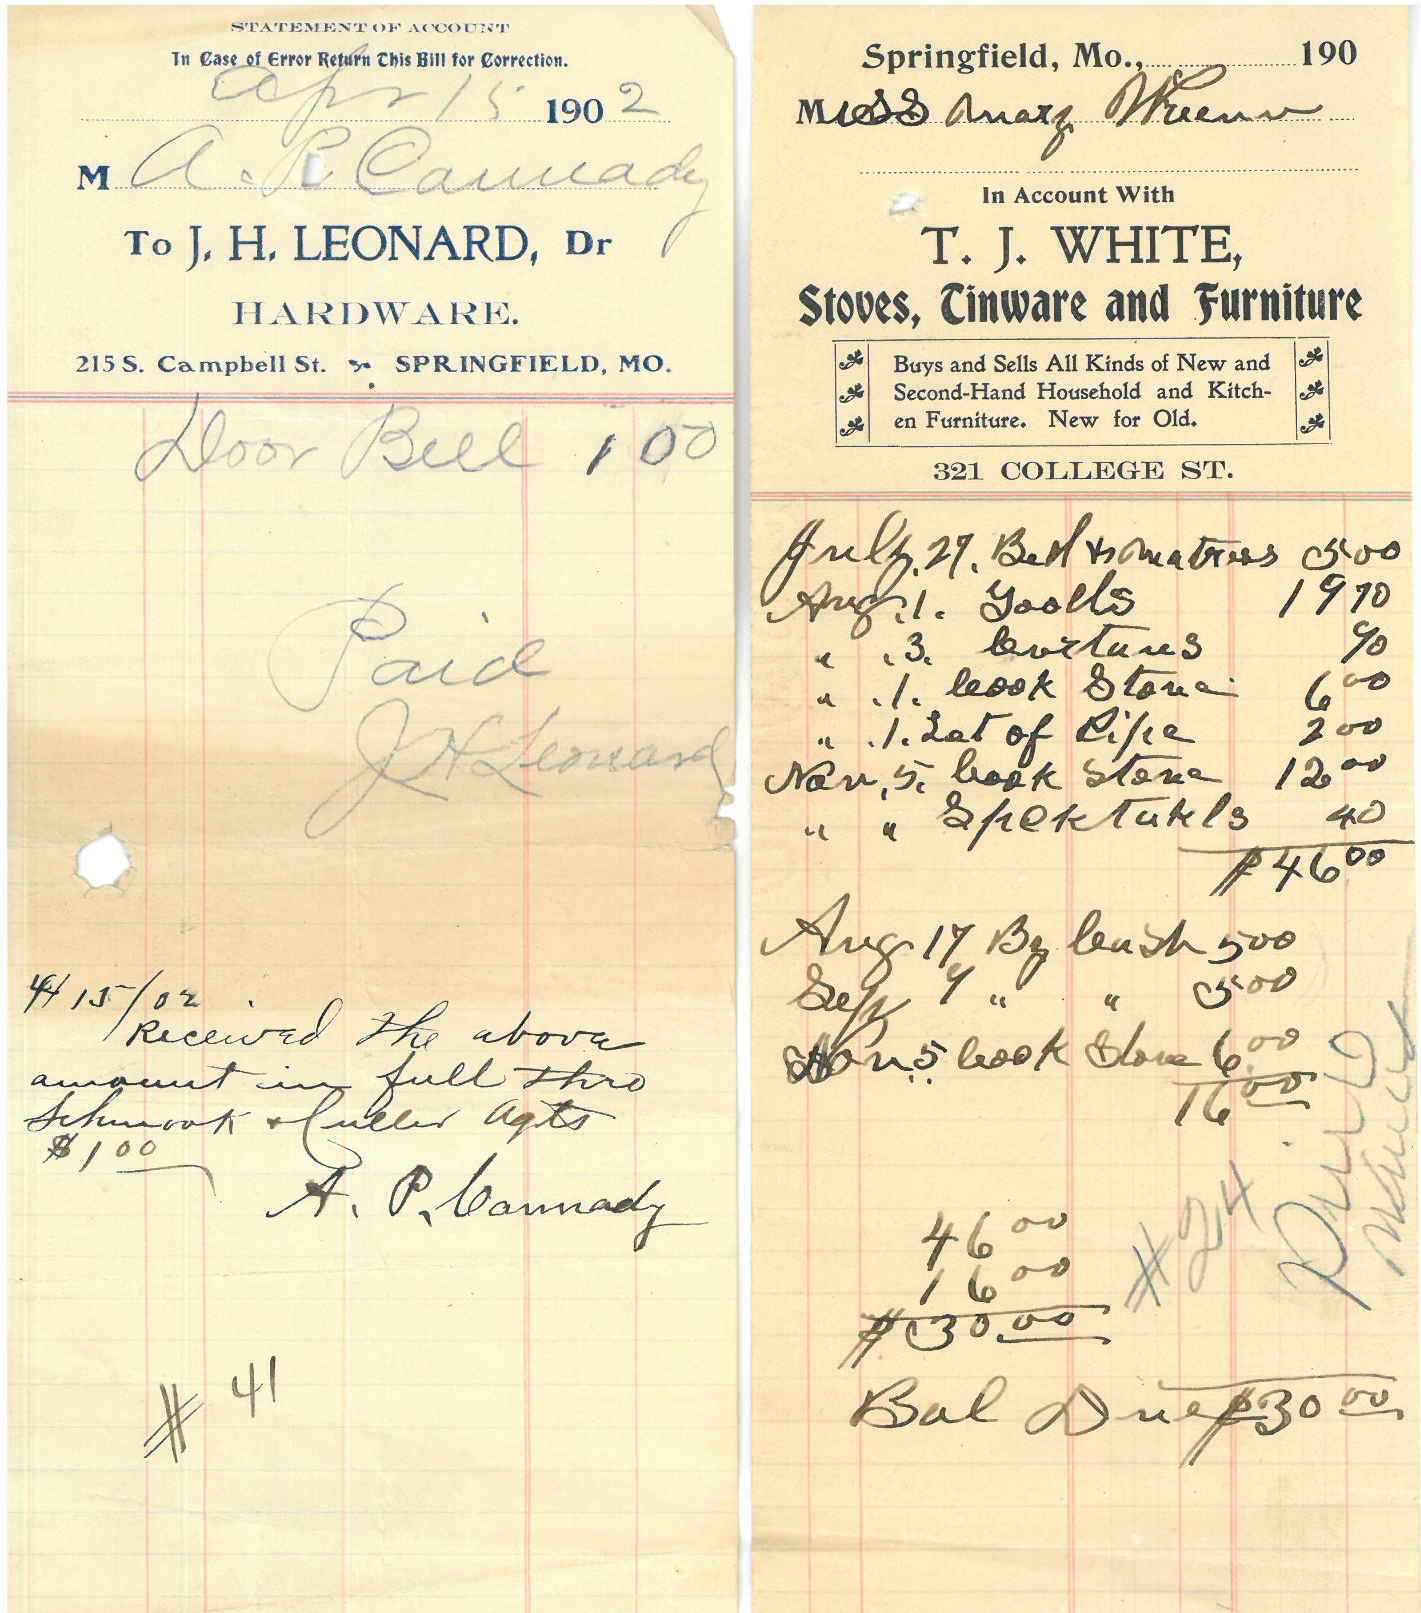 STATEMENT OF ACCOUNT
In Case of Error Return This Bill for Correction.
Apr 15 1902
M A. P. Cannady
To J. H. LEONARD, Dr
HARDWARE.
215 S. Campbell St. SPRINGFIELD, MO.
Door Bell 1 00
Paid
J H Leonard
4/15/02
Received the above
amount in full thro
Schmook & Culler Agts
$1.00
A. P. Cannady
# 41
Springfield, Mo., 190
Miss Mary
In Account With
T. J. WHITE,
Stoves, Tinware and Furniture
Buys and Sells All Kinds of New and
Second-Hand Household and Kitch-
en Furniture. New for Old.
321 COLLEGE ST.
July. 27. Bed & Matress 5 00
Aug. 1. Goods 19 70
" . 3. Curtuns 90
" . 1. Cook Stove 6 00
" . 1. Lot of Pipe 2 00
Nov. 5. Cook Stove 12 00
" " Spektukls 40
$46 00
Aug 17 By Cash 5 00
Sep 9 " " 5 00
Nov. 5 Cook Stove 6.00
16 00
46 00
16 00
$30.00
Bal Due $30 00
# 24
Paid